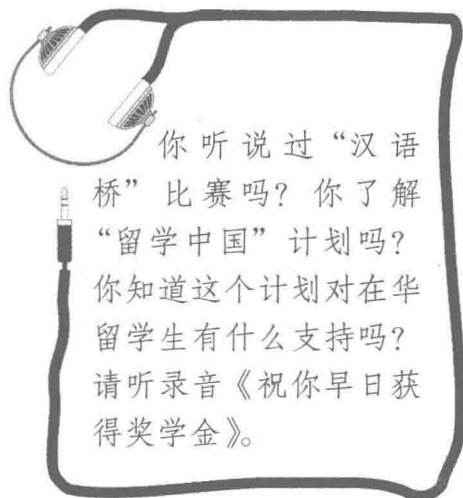 你听说过“汉语
桥”比赛吗？你了解
“留学中国”计划吗？
你知道这个计划对在华
留学生有什么支持吗？
请听录音《祝你早日获
得奖学金》。